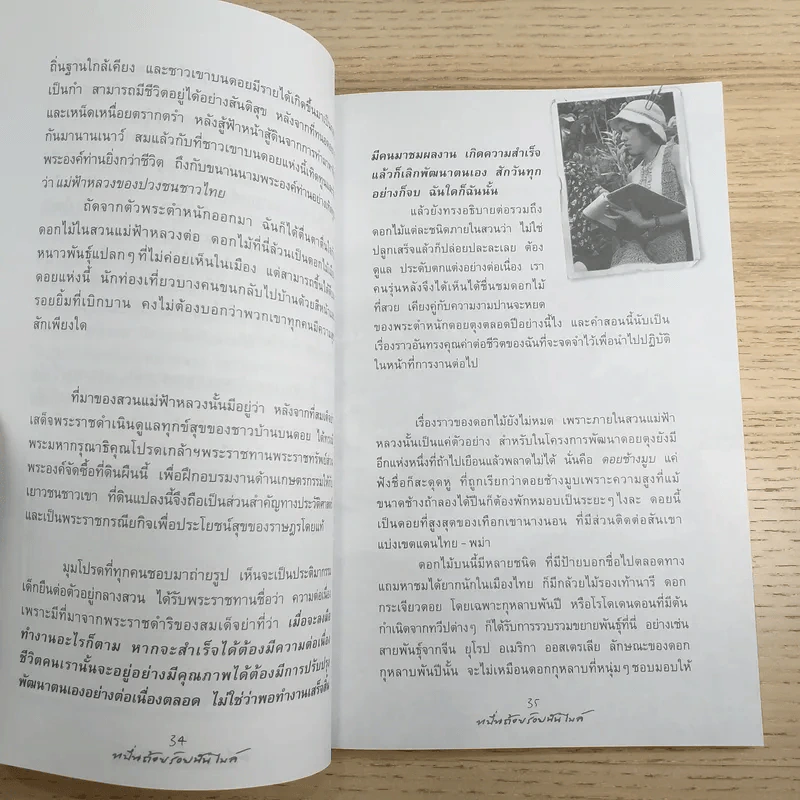 ถิ่นฐานใกล้เคียง และชาวเขาบนดอยมีรายได้เกิดขึ้นมาเป็น
เป็นกำ สามารถมีชีวิตอยู่ได้อย่างสันติสุข หลังจากที่
และเหน็ดเหนื่อยตรากตรำ หลังสู้ฟ้าหน้าสู้ดินจากการทำ
กันมานานเนาว์ สมแล้วกับที่ชาวเขาบนดอยแห่งนี้เกิด
พระองค์ท่านยิ่งกว่าชีวิต ถึงกับขนานนามพระองค์ท่านอย่าง
ว่า แม่ฟ้าหลวงของปวงชนชาวไทย
ถัดจากตัวพระตำหนักออกมา ฉันก็ได้ตื่นตา
ดอกไม้ในสวนแม่ฟ้าหลวงต่อ ดอกไม้ที่นี่ล้วนเป็นดอกไม้
หนาวพันธุ์แปลกๆ ที่ไม่ค่อยเห็นในเมือง แต่สามารถขึ้นได้
ดอยแห่งนี้ นักท่องเที่ยวบางคนขนกลับไปบ้านด้วยสีหน้า
รอยยิ้มที่เบิกบาน คงไม่ต้องบอกว่าพวกเขาทุกคนมีความ
สักเพียงใด
ที่มาของสวนแม่ฟ้าหลวงนั้นมีอยู่ว่า หลังจากที่สมเด็จ
เสด็จพระราชดำเนินดูแลทุกข์สุขของชาวบ้านบนดอย ได้ทรง
พระมหากรุณาธิคุณโปรดเกล้าฯ พระราชทานพระราชทรัพย์
พระองค์จัดซื้อที่ดินผืนนี้ เพื่อฝึกอบรมงานด้านเกษตรกรรมให้
เยาวชนชาวเขา ที่ดินแปลงนี้จึงถือเป็นส่วนสำคัญทางประวัติศาสตร์
และเป็นพระราชกรณียกิจเพื่อประโยชน์สุขของราษฎรโดยแท้
มุมโปรดที่ทุกคนชอบมาถ่ายรูป เห็นจะเป็นประติมากรรม
เด็กยืนต่อตัวอยู่กลางสวน ได้รับพระราชทานชื่อว่า ความต่อเนื่อง
เพราะมีที่มาจากพระราชดำริของสมเด็จย่าที่ว่า เมื่อจะลงมือ
ทำงานอะไรก็ตาม หากจะสำเร็จได้ต้องมีความต่อเนื่อง
ชีวิตคนเรานั้นจะอยู่อย่างมีคุณภาพได้ต้องมีการปรับปรุง
พัฒนาตนเองอย่างต่อเนื่องตลอด ไม่ใช่ว่าพอทำงานเสร็จสิ้น
34
หมื่นถ้อยร้อยพันไมค์
มีคนมาชมผลงาน เกิดความสำเร็จ
แล้วก็เลิกพัฒนาตนเอง สักวันทุก
อย่างก็จบ ฉันใดก็ฉันนั้น
แล้วยังทรงอธิบายต่อรวมถึง
ดอกไม้แต่ละชนิดภายในสวนว่า ไม่ใช่
ปลูกเสร็จแล้วก็ปล่อยปละละเลย ต้อง
ดูแล ประดับตกแต่งอย่างต่อเนื่อง เรา
คนรุ่นหลังจึงได้เห็นได้ชื่นชมดอกไม้
ที่สวย เคียงคู่กับความงามปานจะหยด
ของพระตำหนักดอยตุงตลอดปีอย่างนี้ไง และคำสอนนี้นับเป็น
เรื่องราวอันทรงคุณค่าต่อชีวิตของฉันที่จะจดจำไว้เพื่อนำไปปฏิบัติ
ในหน้าที่การงานต่อไป
เรื่องราวของดอกไม้ยังไม่หมด เพราะภายในสวนแม่ฟ้า
หลวงนั้นเป็นแค่ตัวอย่าง สำหรับในโครงการพัฒนาดอยตุงยังมี
อีกแห่งหนึ่งที่ถ้าไปเยือนแล้วพลาดไม่ได้ นั่นคือ ดอยช้างมูบ แค่
ฟังชื่อก็สะดุดหู ที่ถูกเรียกว่าดอยช้างมูบเพราะความสูงที่แม้
ขนาดช้างถ้าลองได้ปีนก็ต้องพักหมอบเป็นระยะๆ ไงละ ดอยนี้
เป็นดอยที่สูงสุดของเทือกเขานางนอน ที่มีส่วนติดต่อสันเขา
แบ่งเขตแดนไทย - พม่า
ดอกไม้บนนี้มีหลายชนิด ที่มีป้ายบอกชื่อไปตลอดทาง
แถมหาชมได้ยากนักในเมืองไทย ก็มีกล้วยไม้รองเท้านารี ดอก
กระเจียวดอย โดยเฉพาะกุหลาบพันปี หรือโรโดเดนดอนที่มีต้น
กำเนิดจากทวีปต่างๆ ก็ได้รับการรวบรวมขยายพันธุ์ที่นี่ อย่างเช่น
สายพันธุ์จากจีน ยุโรป อเมริกา ออสเตรเลีย ลักษณะของดอก
กุหลาบพันปีนั้น จะไม่เหมือนดอกกุหลาบที่หนุ่มๆ ชอบมอบให้
35
หมื่นถ้อยร้อยพันไมค์